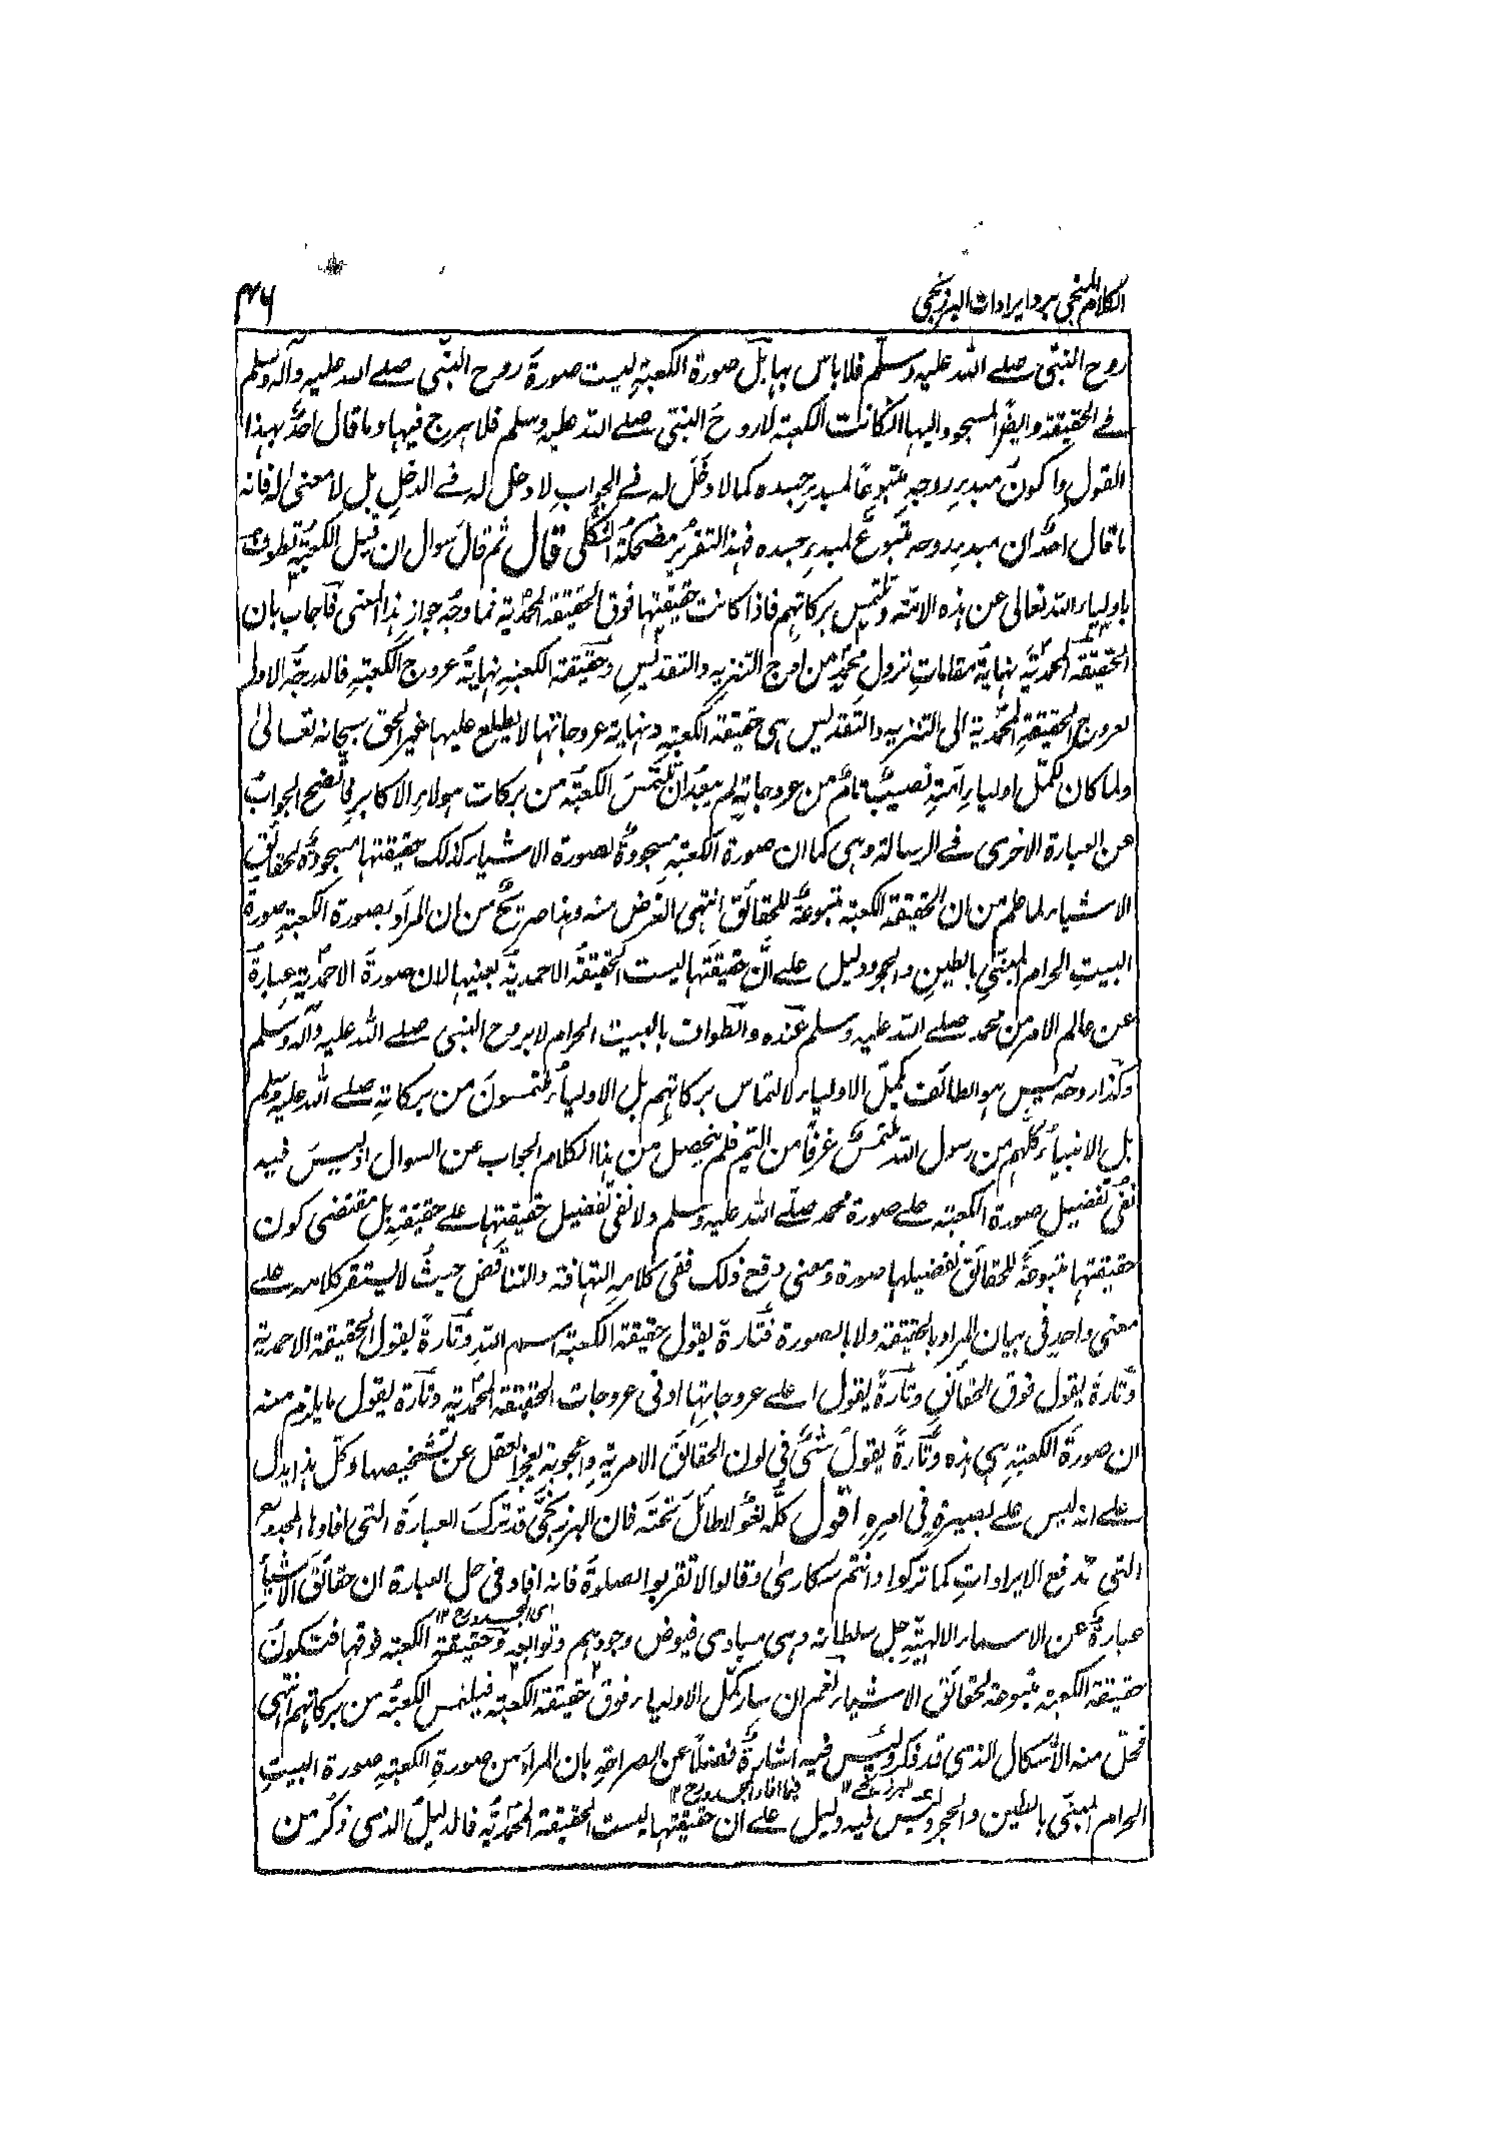 الكلام المنجي برد ايرادات البرزنجي
۴۶
روح النبي صلے اللہ عليه وسلم فلا باس بها بل صورة الكعبة ليست صورة روح النبي صلے اللہ عليه وآله وسلم
فے الحقيقة وايضا المسجود اليها اذا كانت الكعبة لا روح النبي صلے اللہ عليه وسلم فلا حرج فيها وما قال احد بهذا
القول وا كون مبدء روحه متبوعا لمبدء جسده كما لا دخل له فے الجواب لا دخل له فے الدخل بل لا معنى له فانه
ما قال احد ان مبدء روحه متبوع لمبدء جسده فهذا التقرير مضحكة الثكلى قال ثم قال سوال ان قيل الكعبة تطوف
باولياء اللہ تعالى عن هذه الامة وتلتمس بركاتهم فاذا كانت حقيقتها فوق الحقيقة المحمدية فما وجه جواز هذا المعنى فاجاب بان
الحقيقة المحمدية نهاية مقامات نزول محمد من اوج التنزيه والتقديس وحقيقة الكعبة نهاية عروج الكعبة فالدرجة الاولى
لعروج الحقيقة المحمدية الى التنزيه والتقديس هي حقيقة الكعبة ونهاية عروجاتها لا يطلع عليها غير الحق سبحانه تعالى
ولما كان لكمل اولياء امته نصيب تام من عروجاته لم يبعد ان تلتمس الكعبة من بركات هولاء الاكابر فاتضح الجواب
عن العبارة الاخرى فے الرسالة وهي كما ان صورة الكعبة مسجودة لصورة الاشياء كذلك حقيقتها مسجودة لحقائق
الاشياء لما علم من ان الحقيقة الكعبة متبوعة للحقائق انتهى الغرض منه وهذا صريح من ان المراد بصورة الكعبة صورة
البيت الحرام المبني بالطين والحجر ودليل علے ان حقيقتها ليست الحقيقة الاحمدية بعينها لان صورة الاحمدية عبارة
عن عالم الامر من محمد صلے اللہ عليه وسلم عنده والطواف بالبيت الحرام لا بروح النبي صلے اللہ عليه وآله وسلم
وكذا روحه ليس هو الطائف بكمل الاولياء لالتماس بركاتهم بل الاولياء يلتمسون من بركاته صلے اللہ عليه وسلم
بل الانبياء كلهم من رسول اللہ ملتمس غرفا من اليم فلم يحصل من هذا الكلام الجواب عن السوال اذ ليس فيه
نفي تفضيل صورة الكعبة علے صورة محمد صلے اللہ عليه وسلم ولا نفي تفضيل حقيقتها علے حقيقته بل مقتضى كون
حقيقتها متبوعة للحقائق تفضيلها صورة ومعنى ومع ذلك ففي كلامه التهافت والتناقض حيث لا يستقر كلامه علے
معنى واحد في بيان المراد بالحقيقة ولا بالصورة فتارة يقول حقيقة الكعبة اسم اللہ وتارة يقول الحقيقة الاحمدية
وتارة يقول فوق الحقائق وتارة يقول اعلے عروجاتها ادنى عروجات الحقيقة المحمدية وتارة يقول ما يلزم منه
ان صورة الكعبة هي هذه وتارة يقول شئ في لون الحقائق الامرية واعجوبة يعجز العقل عن تشخيصها وكل هذا يدل
علے انه ليس علے بصيرة في امره اقول كله لغو لا طائل تحته فان البرزنجي قد ترك العبارة التي افادها المجدد رح
التي تدفع الايرادات كما تركوا وانتم سكارى وقالوا لا تقربوا الصلوة فانه افاد في حل العبارة ان حقائق الاشياء
اى المجدد رح ۱۲
عبارة عن الاسماء الالهية جل سلطانه وهي مبادي فيوض وجودهم وتوابعه وحقيقة الكعبة فوقها فتكون
حقيقة الكعبة متبوعة لحقائق الاشياء نعم ان سار كمل الاولياء فوق حقيقة الكعبة فيلتمس الكعبة من بركاتهم انتهى
فحل منه الاشكال الذي قد ذكر وليس فيه اشارة فضلا عن الصراحة بان المراد من صورة الكعبة صورة البيت
عہ البرزنجي ۱۲ فيما افاد المجدد رح ۱۲
الحرام المبني بالطين والحجر وليس فيه دليل علے ان حقيقتها ليست الحقيقة المحمدية فالدليل الذي ذكر من